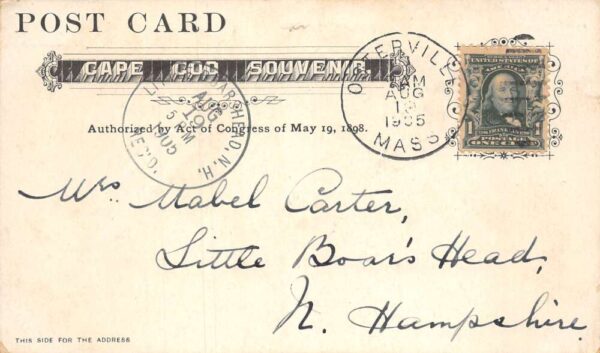 POST CARD
CAPE COD SOUVENIR
Authorized by Act of Congress of May 19, 1898.
LITTLE BOARS HEAD, N.H.
AUG
19
5 PM
1905
REC'D.
OSTERVILLE
M
AUG
1905
MASS
1
POSTAGE
ONE CENT
Mrs Mabel Carter,
Little Boar's Head,
N. Hampshire
THIS SIDE FOR THE ADDRESS